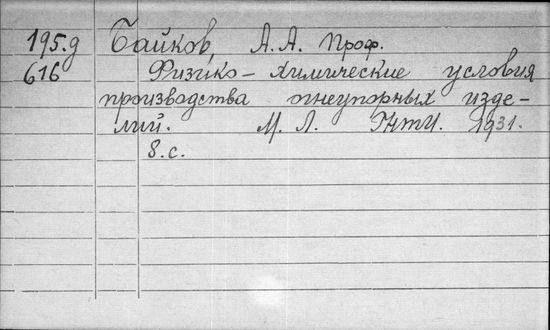 195.д Байков, А.А. Проф.
616 Физико-химические условия
производства огнеупорных изде-
лий. М. Л. ГНТИ. 1931.
8.с.